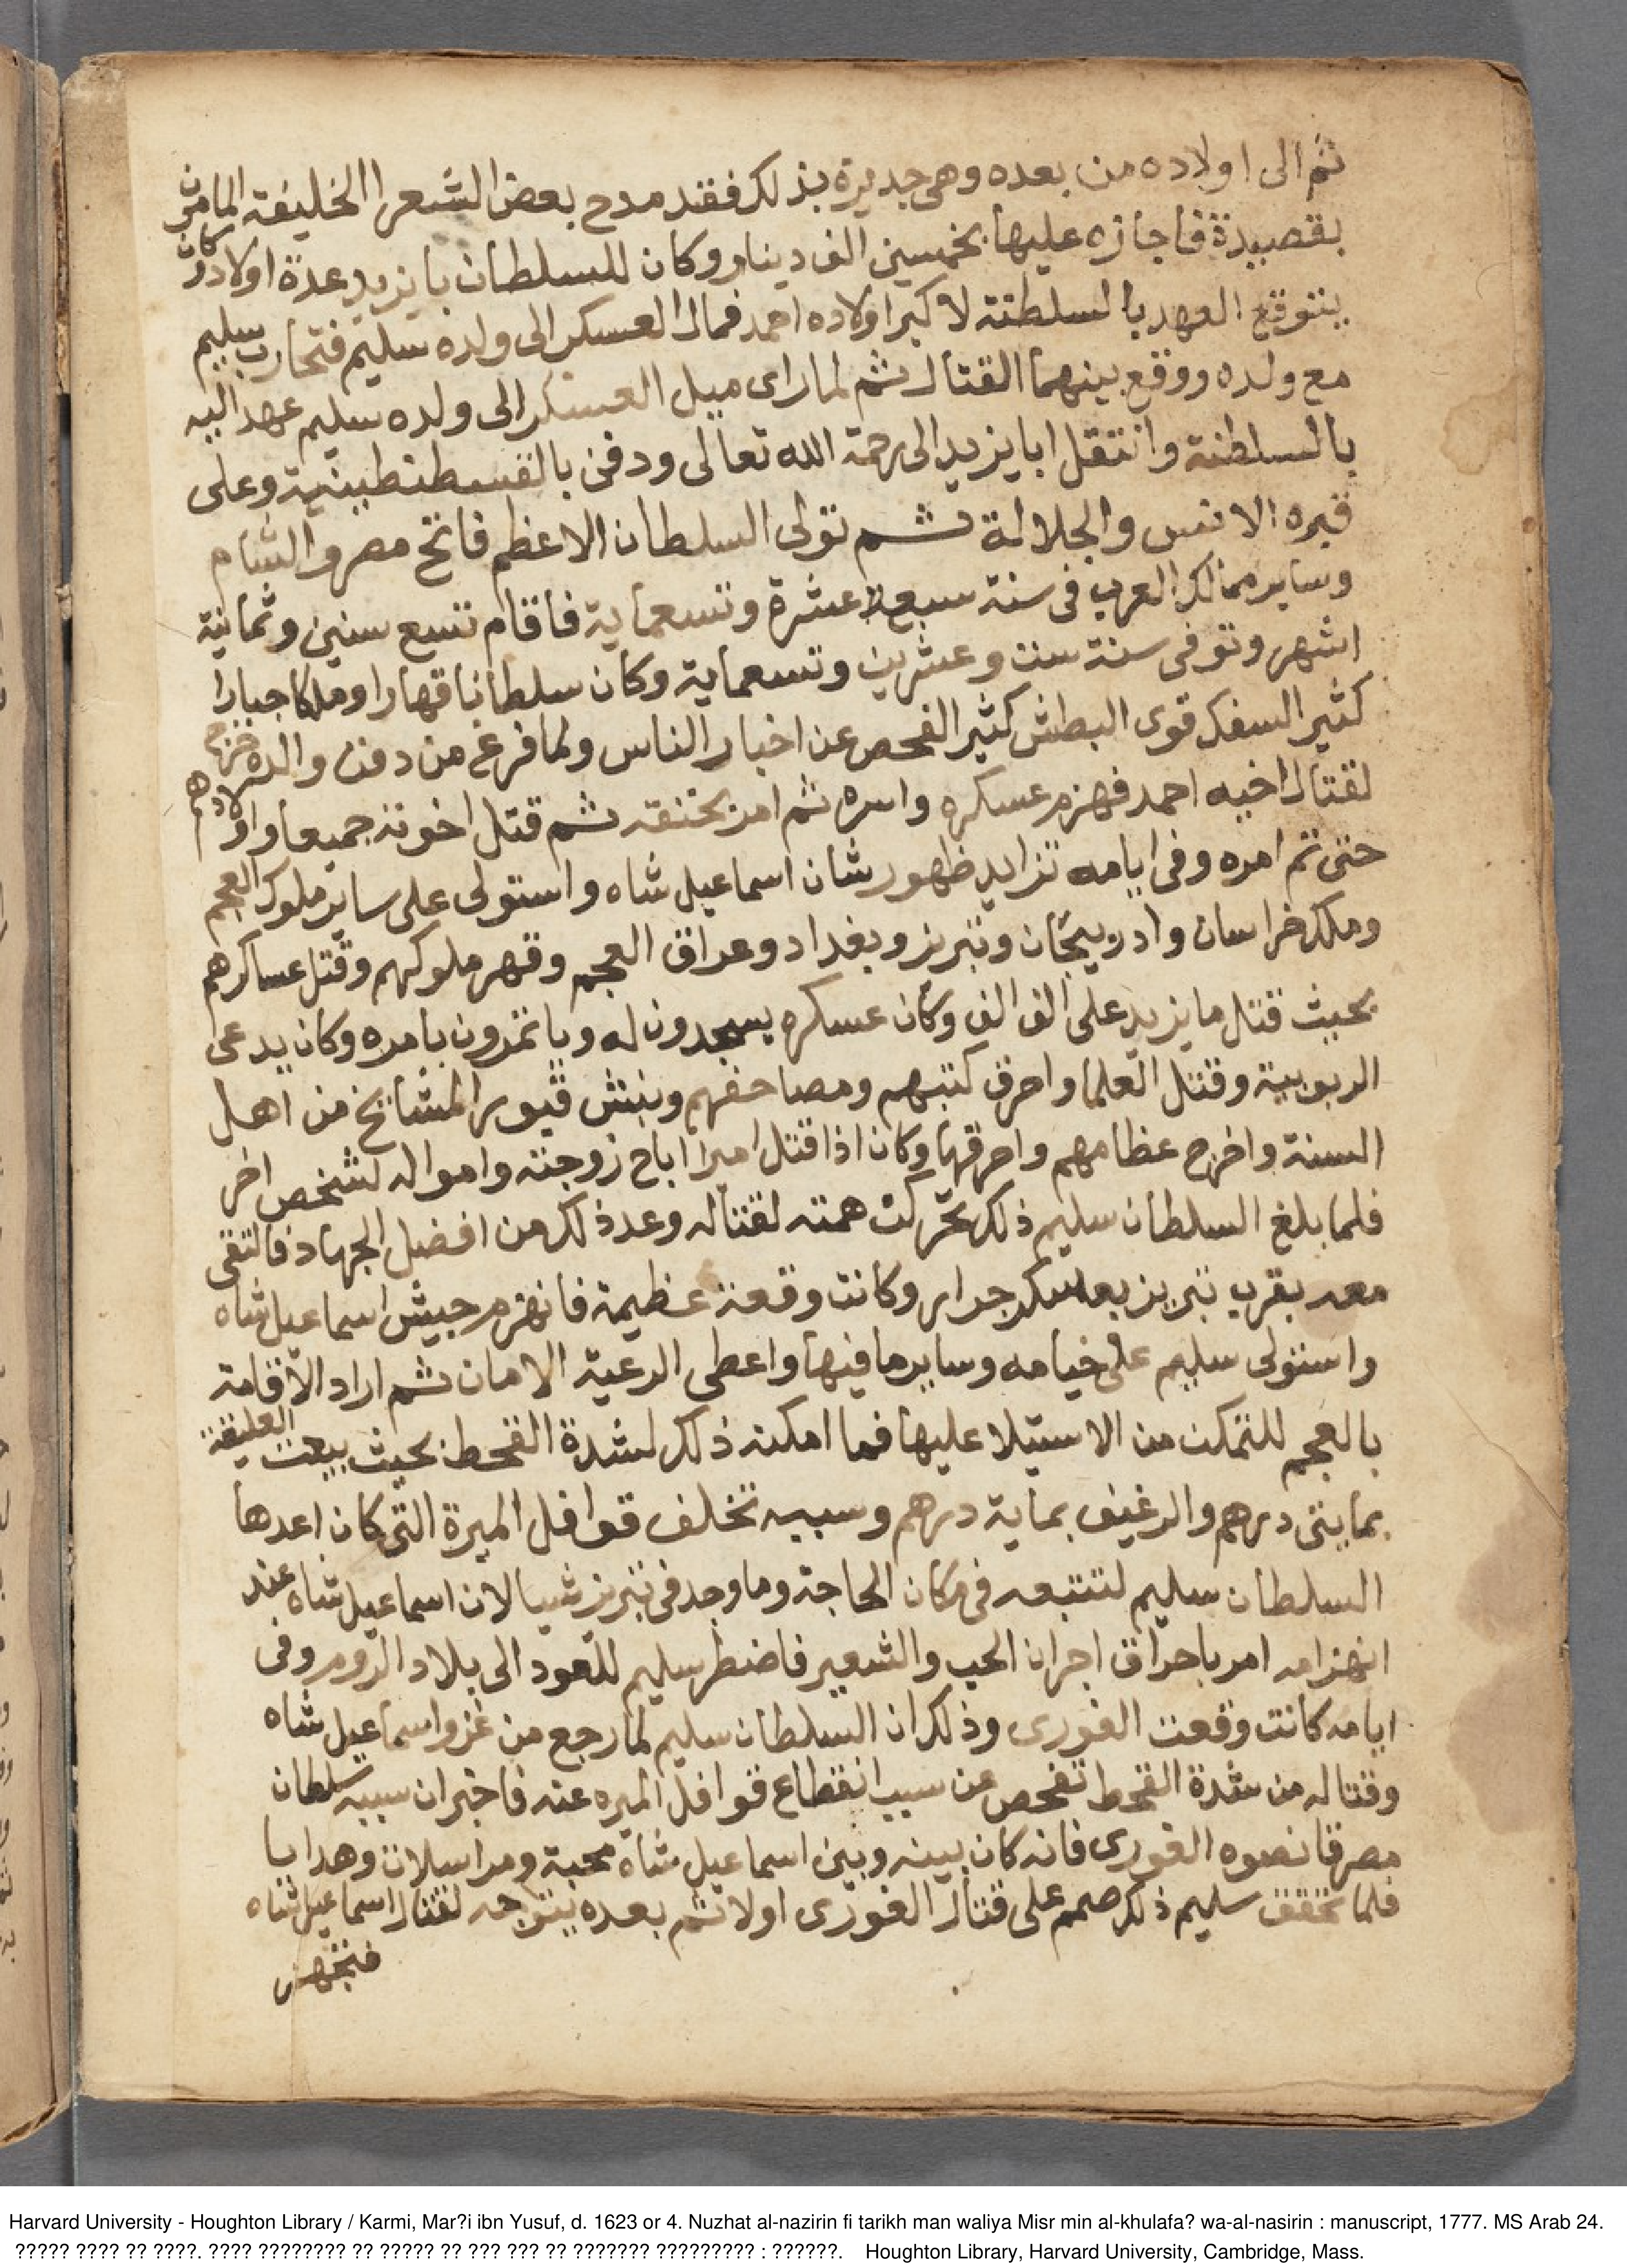 ثم الى اولاده من بعده وهى جديرة بذلك فقد مدح بعض الشعرا الخليفة المامون
بقصيدة فاجازه عليها بخمسين الف دينار وكان للسلطان بايزيد عدة اولاد وكان
يتوقع العهد بالسلطنة لاكبر اولاده احمد فمال العسكر الى ولده سليم فتحارب سليم
مع ولده ووقع بينهما القتال ثم لما راى ميل العسكر الى ولده سليم عهد اليه
بالسلطنة وانتقل ابا يزيد الى رحمة الله تعالى ودفن بالقسطنطينية وعلى
قبره الانس والجلالة ثم تولى السلطان الاعظم فاتح مصر والشام
وساير ممالك العرب فى سنة سبع عشرة وتسعماية فاقام تسع سنين وثمانية
اشهر وتوفى سنة ست وعشرين وتسعماية وكان سلطانا قهارا وملكا جبارا
كثير السفك قوى البطش كثير الفحص عن اخبار الناس ولما فرغ من دفن والده خرج
لقتال اخيه احمد فهزم عسكره واسره ثم امر بخنقه ثم قتل اخوته جميعا واولادهم
حتى تم امره وفى ايامه تزايد ظهور شان اسماعيل شاه واستولى على ساير ملوك العجم
وملك خراسان وادربيجان وتبريز وبغداد وعراق العجم وقهر ملوكهم وقتل عساكرهم
بحيث قتل ما يزيد على الف الف وكان عسكره يسجدون له وياتمرون بامره وكان يدعى
الربوبية وقتل العلما واحرق كتبهم ومصاحفهم ونبش قبور المشائخ من اهل
السنة واخرج عظامهم واحرقها وكان اذا قتل اميرا اباح زوجته وامواله لشخص اخر
فلما بلغ السلطان سليم ذلك تحركت همته لقتاله وعد ذلك من افضل الجهاد فالتقى
معه بقرب تبريز بعسكر جرار وكانت وقعة عظيمة فانهزم جيش اسماعيل شاه
واستولى سليم على خيامه وساير ما فيها واعطى الرعية الامان ثم اراد الاقامة
بالعجم للتمكن من الاستيلا عليها فما امكنه ذلك لشدة القحط بحيث بيعت العليقة
بمايتى درهم والرغيف بماية درهم وسببه تخلف قوافل الميرة التى كان اعدها
السلطان سليم لتتبعه فى مكان الحاجة وما وجد فى تبريز شيا لان اسماعيل شاه عند
انهزامه امر باحراق اجران الحب والشعير فاضطر سليم للعود الى بلاد الروم وفى
ايامه كانت وقعت الغورى وذلك ان السلطان سليم لما رجع من غزو اسماعيل شاه
وقتاله من شدة القحط تفحص عن سبب انقطاع قوافل الميره عنه فاخبر ان سببه سلطان
مصر قانصوه الغورى فانه كان بينه وبين اسماعيل شاه محبة ومراسلات وهدايا
فلما تحقق سليم ذلك صمم على قتال الغورى اولا ثم بعده يتوجه لقتال اسماعيل شاه
فتجهز
Harvard University - Houghton Library / Karmi, Mar?i ibn Yusuf, d. 1623 or 4. Nuzhat al-nazirin fi tarikh man waliya Misr min al-khulafa? wa-al-nasirin : manuscript, 1777. MS Arab 24.
????? ???? ?? ????. ???? ???????? ?? ????? ?? ??? ??? ?? ??????? ????????? : ??????. Houghton Library, Harvard University, Cambridge, Mass.